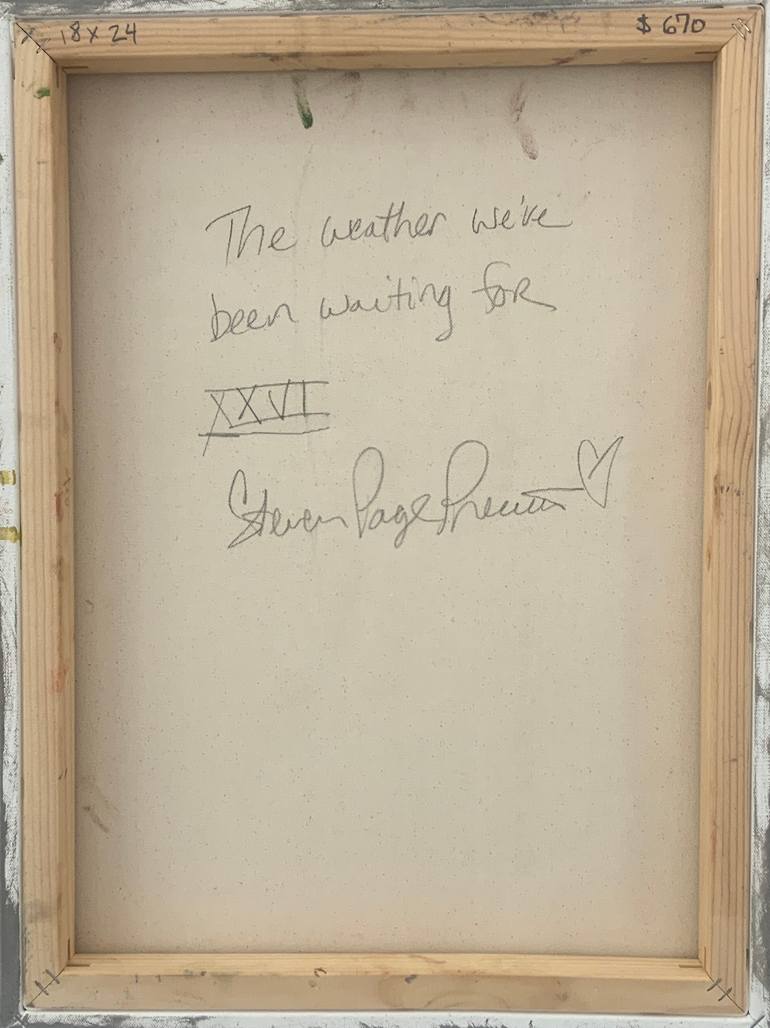 18 x 24
$ 670
The weather we've
been waiting for
XXVI
Steven Page Prewitt